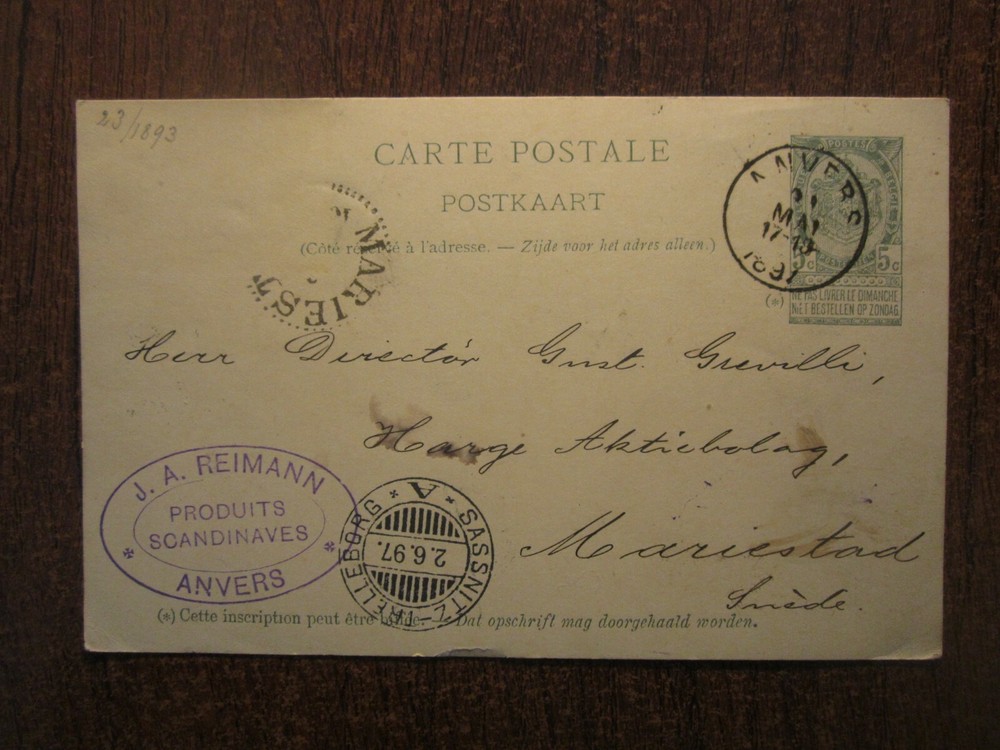 23/1893
CARTE POSTALE
POSTKAART
(Côté réservé à l'adresse. — Zijde voor het adres alleen.)
POSTES
5c 5c
ANVERS
MAI
1897
(*)
NE PAS LIVRER LE DIMANCHE
NIET BESTELLEN OP ZONDAG
MARIEST
Herr Directör Gust. Grevilli,
Aktiebolag,
Mariestad
Suède.
J. A. REIMANN
PRODUITS
SCANDINAVES
ANVERS
SASSNITZ-TRELLEBORG
* A *
2.6.97.
(*) Cette inscription peut être biffée. — Dat opschrift mag doorgehaald worden.